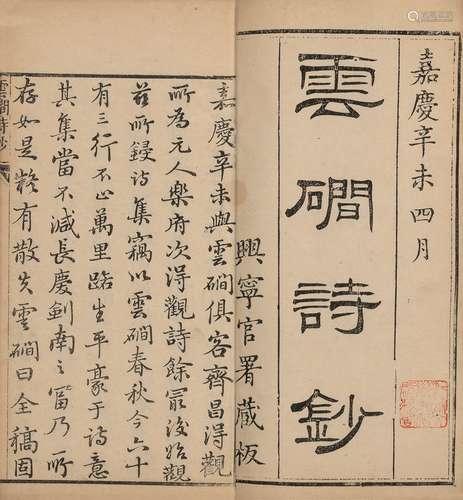 嘉慶辛未四月
雲磵詩鈔
興寧官署藏板
嘉慶辛未與雲磵俱客齊昌得觀
所為元人樂府次得觀詩餘最後始觀
茲所鋟詩集竊以雲磵春秋今六十
有三行不止萬里路生平豪于詩意
其集當不減長慶劍南之富乃所
存如是有散失雲磵曰全稿固
雲磵詩鈔